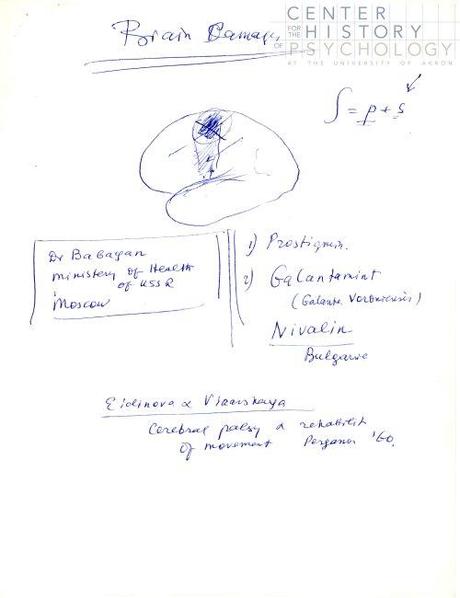 CENTER
FOR THE HISTORY
OF PSYCHOLOGY
AT THE UNIVERSITY OF AKRON
Brain Damage
S = p + s
Dr Babayan
Ministery of Health
of USSR
Moscow
1) Prostigmin.
2) Galantamint
(Galant. Voronicusis)
Nivalin
Bulgaria
Eidinova &
Cerebral palsy & rehabilit
of movement Pergamon '60.